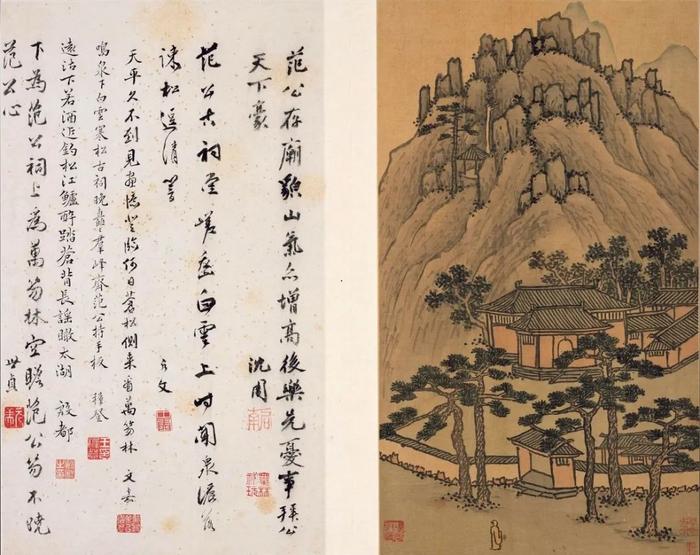 范公存廟貌山氣亦增高後樂先憂事拜公
天下豪 沈周
范公古祠堂嵯峨白雲上時聞泉
疎松逗清響
天平久不到見畫憶登臨何日蒼松側來看萬笏林 文嘉
鳴泉下白雲寒松古祠晚矗矗群峰齊范公持手板 穉登
遠沽下若酒近釣松江鱸醉踏蒼背長謠瞰太湖 殷都
下為范公祠上為萬笏林空瞻范公笏不曉
范公心 世貞